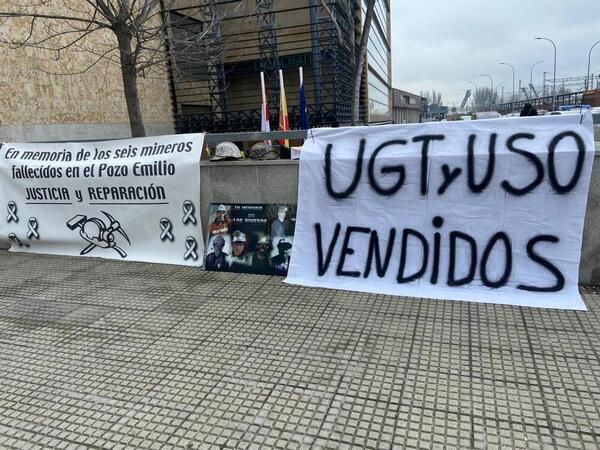 En memoria de los seis mineros
fallecidos en el Pozo Emilio
JUSTICIA y REPARACIÓN
EN MEMORIA
DE
LOS MINEROS
UGT y USO
VENDIDOS